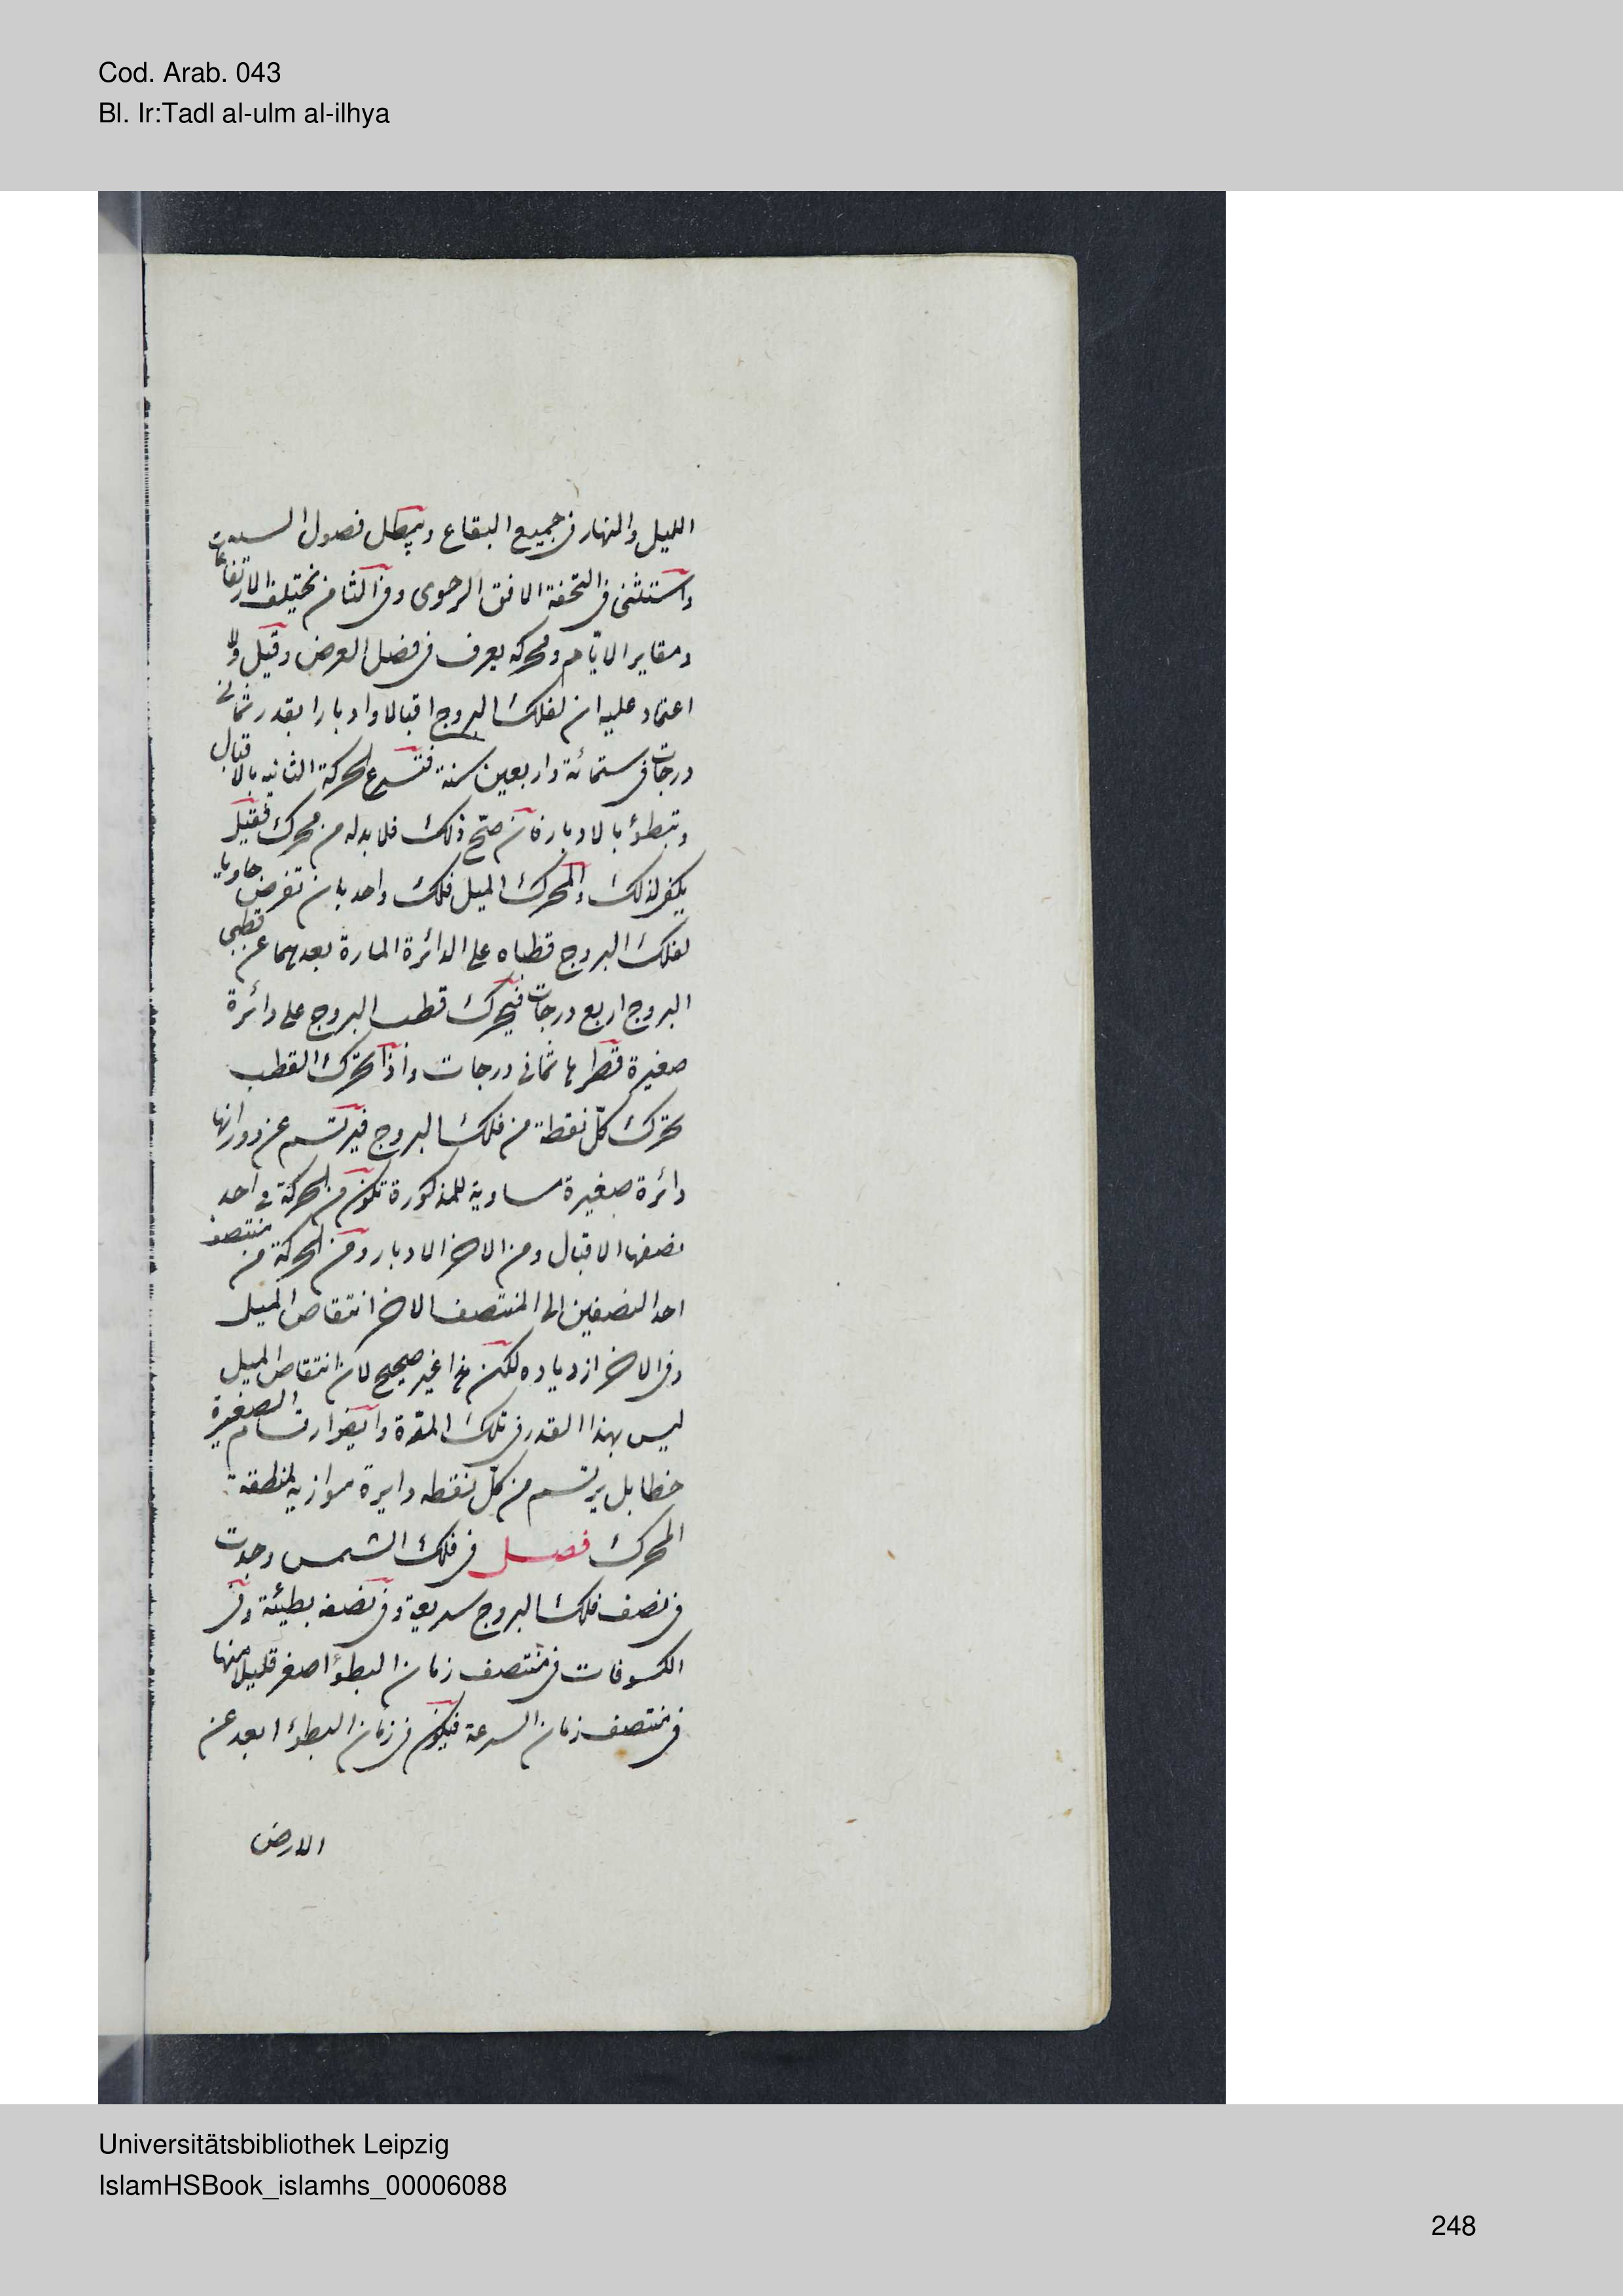 Cod. Arab. 043
Bl. Ir:Tadl al-ulm al-ilhya
الليل والنهار فى جميع البقاع ويبطل فصول السنة
واستثنى فى التحفة الافق الرحوى وفى الثامن تختلف الارتفاعات
ومقاير الايام ومحركه يعرف فى فصل العرض وقيل ولا
اعتماد عليه ان لفلك البروج اقبالا وادبارا بقدر ثمانى
درجات فى ستمائة واربعين سنة فتسرع الحركة الثانيه بالاقبال
وتبطؤ بالادبار فان صحّ ذلك فلا بد له من محرك فقيل
يكفى لذلك ولمحرك الميل فلك واحد بان تفرض حاويا
لفلك البروج قطباه على الدائرة المارة بعدهما عن قطبى
البروج اربع درجات فيحرك قطب البروج على دائرة
صغيرة قطرها ثمانى درجات واذا تحرك القطب
تحرك كلّ نقطة من فلك البروج فيرتسم عن دورانها
دائرة صغيرة مساوية للمذكورة تكون من الحركة فى احد
نصفها الاقبال ومن الاخر الادبار ومن الحركة من منتصف
احد النصفين الى المنتصف الاخر انتقاص الميل
وفى الاخر ازدياده لكن هذا غير صحيح لان انتقاص الميل
ليس بهذا القدر فى تلك المدّة وايضا ارتسام الصغيرة
خطا بل يرتسم من كلّ نقطه دايرة موازيه لمنطقة
المحرك فصل فى فلك الشمس وجدت
فى نصف فلك البروج سريعة وفى نصفه بطيئة وفى
الكسوفات فى منتصف زمان البطؤ اصغر قليلا منها
فى منتصف زمان السرعة فيكون فى زمان البطؤ ابعد عن
الارض
Universitätsbibliothek Leipzig
IslamHSBook_islamhs_00006088
248